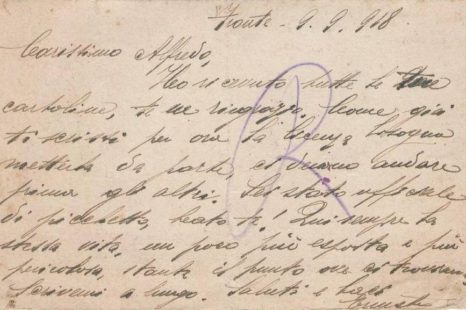 Fronte - 9. 9. 918
Carissimo Alfredo,
Ho ricevuto tutte le tue
cartoline, te ne ringrazio. Come già
ti scrissi per ora la licenza bisogna
metterla da parte, ci devono andare
prima gli altri. Sei stato ufficiale
di picchetto, beato te! Qui sempre la
stessa vita, un poco più esposta e più
pericolosa, stante il punto ove ci troviamo.
Scrivimi a lungo. Saluti e baci
R